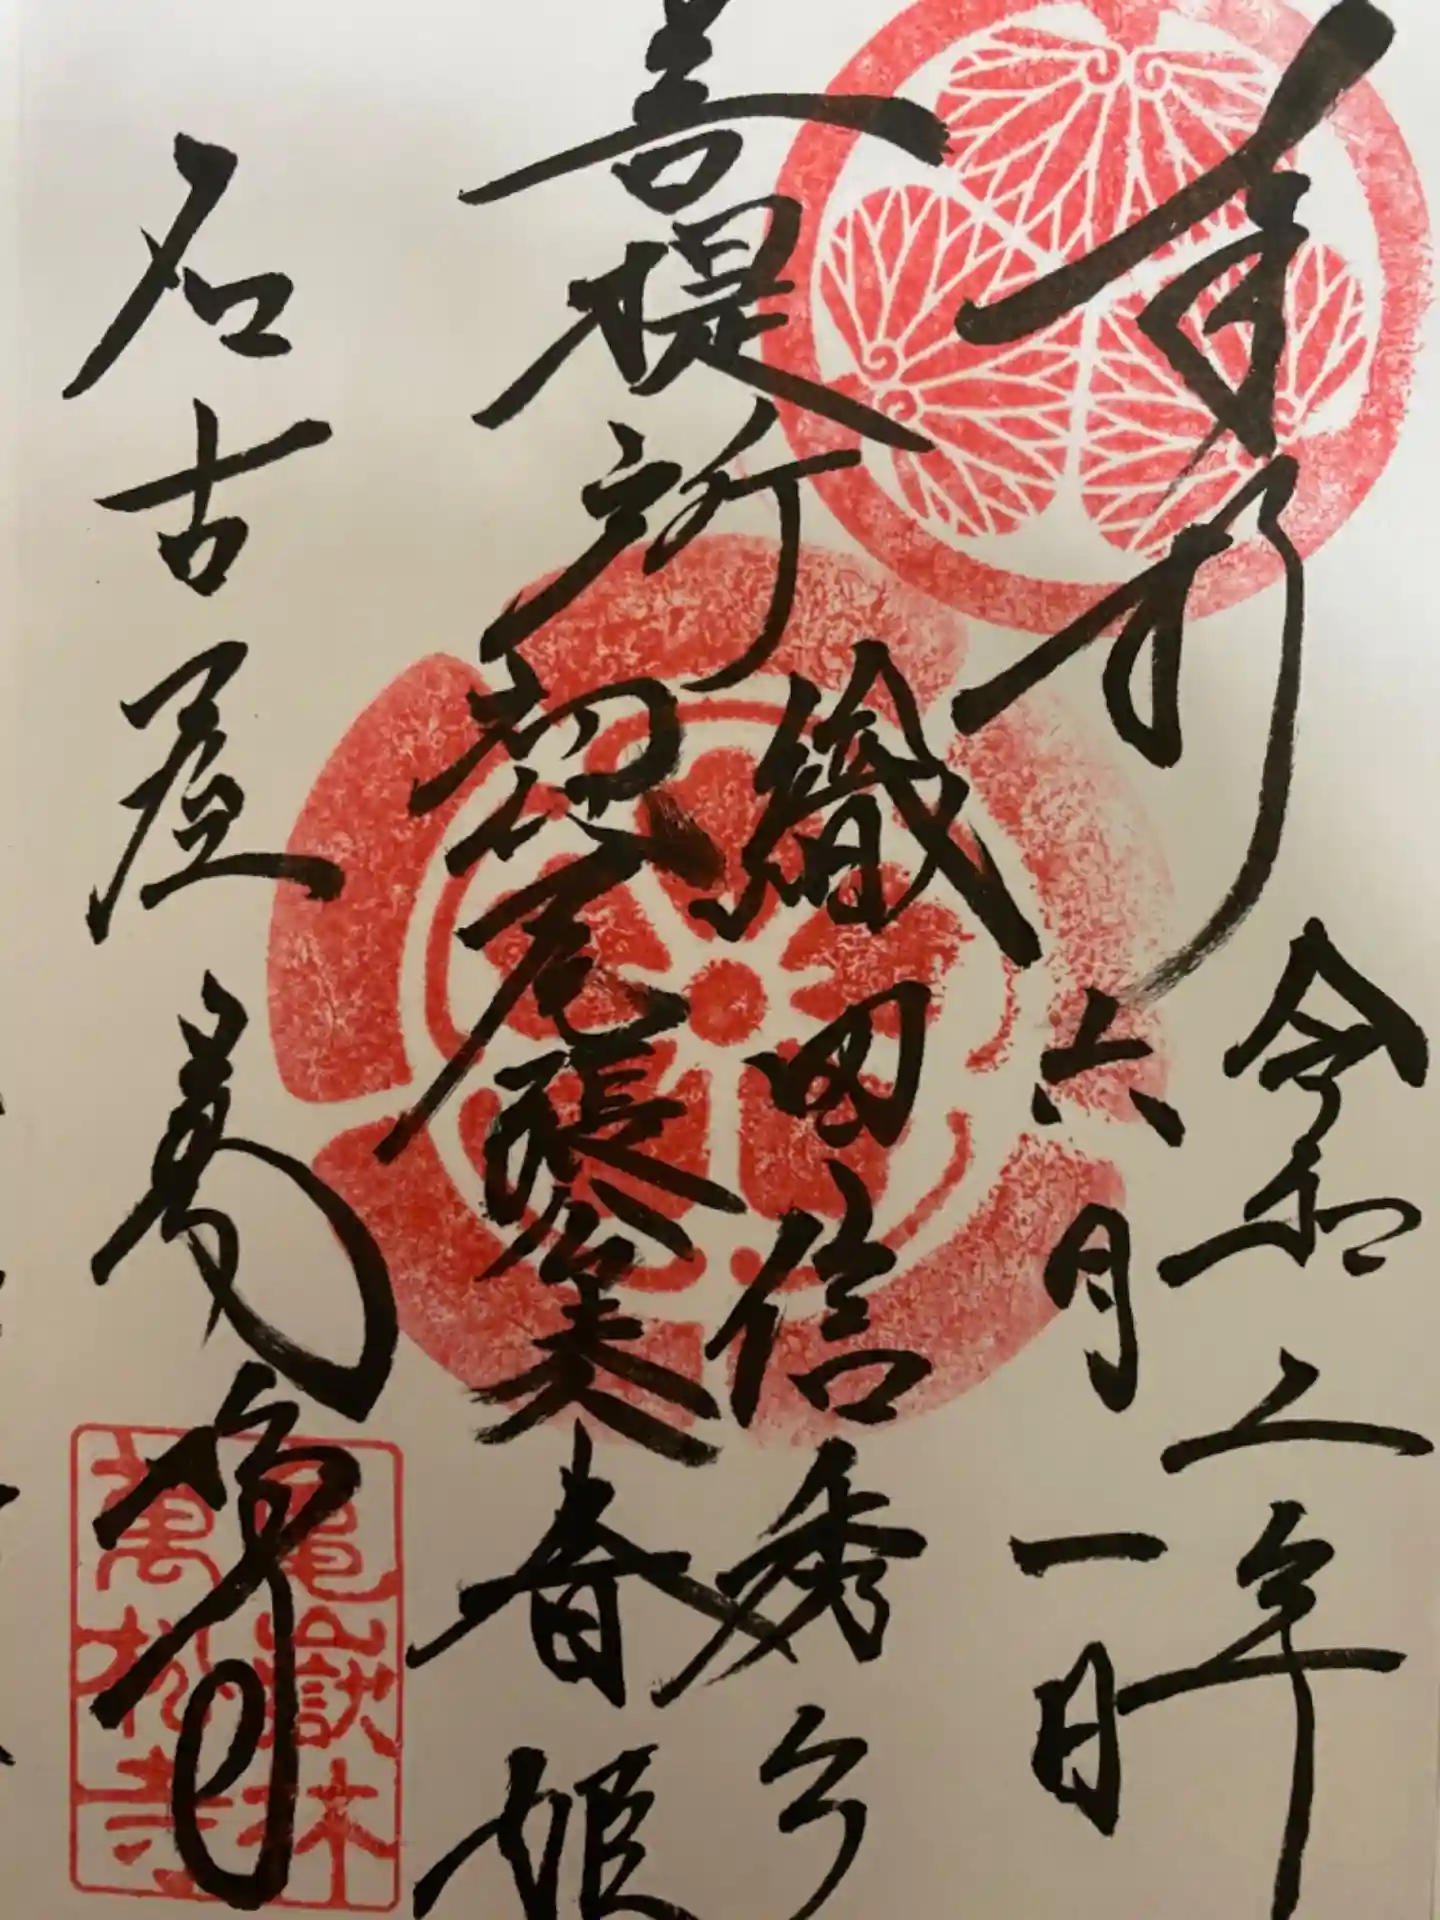 奉拝
令和二年
六月一日
菩提所
織田信秀公
初代尾張公夫人
春姫
名古屋 萬松寺
亀嶽林
萬松寺